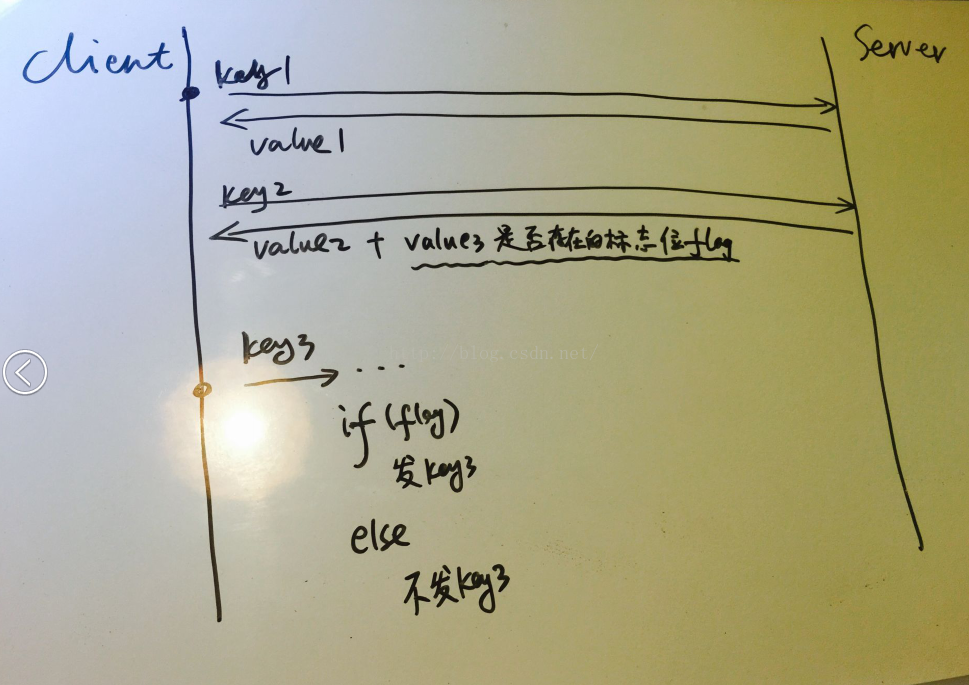 Client
Server
key1
value1
key2
value2 + value3是否存在的标志位flag
key3
http://blog.csdn.net/
...
if (flag)
发key3
else
不发key3